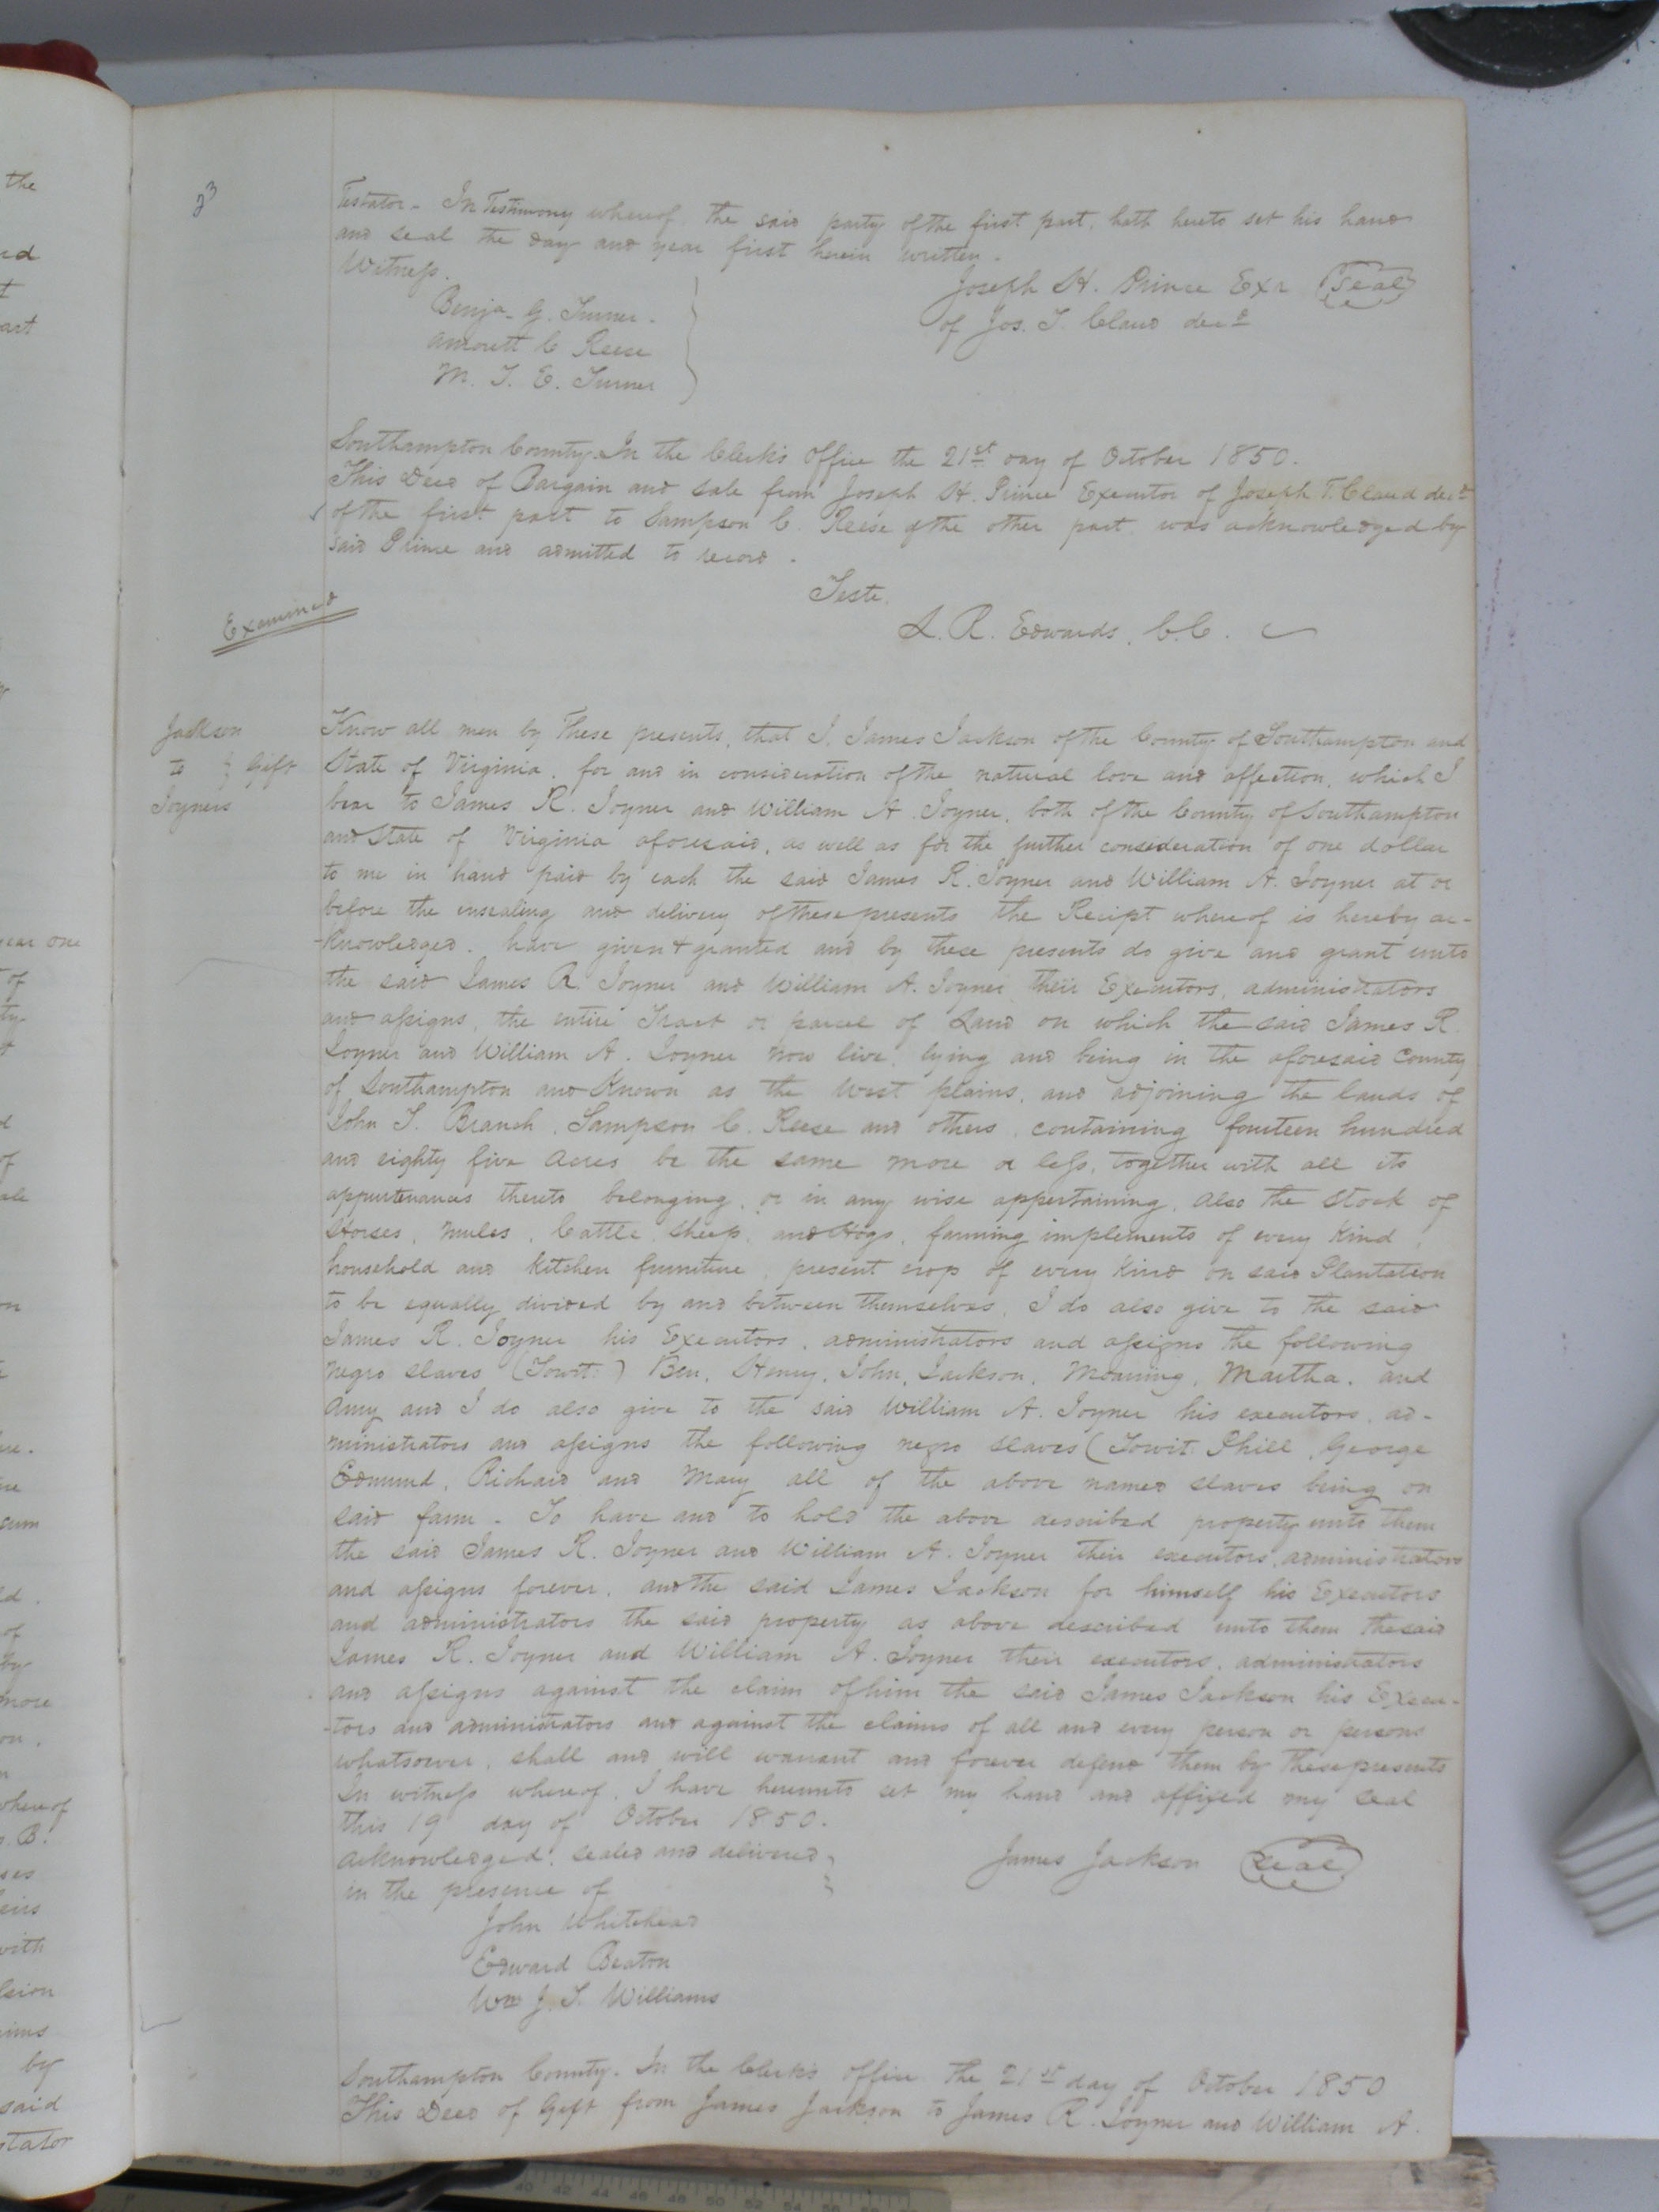 23
Testator - In Testimony whereof the said party of the first part, hath hereto set his hand
and seal the day and year first herein written -
Witness.
Joseph H. Prince Exr Seal
of Jos. T. Claud decd
Benja. G. Turner -
Amorett C Reese
M. T. E. Turner
Southampton County. In the Clerk's Office the 21st day of October 1850.
This Deed of Bargain and sale from Joseph H. Prince Executor of Joseph T. Claud decd
of the first part to Sampson C. Reese of the other part was acknowledged by
said Prince and admitted to record.
Teste.
L. R. Edwards, C.C.
Examined
Jackson
to } Gift
Joyners
Know all men by These presents, that I, James Jackson of the County of Southampton and
State of Virginia, for and in consideration of the natural love and affection, which I
bear to James R. Joyner and William A. Joyner, both of the County of Southampton
and State of Virginia aforesaid, as well as for the further consideration of one dollar
to me in hand paid by each the said James R. Joyner and William A. Joyner at or
before the ensealing and delivery of these presents the Receipt whereof is hereby ac-
-knowledged. have given & granted and by these presents do give and grant unto
the said James R. Joyner and William A. Joyner their Executors, administrators
and assigns, the entire Tract or parcel of Land on which the said James R.
Joyner and William A. Joyner now live, lying and being in the aforesaid County
of Southampton and Known as the West plains, and adjoining the lands of
John T. Branch, Sampson C. Reese and others, containing fourteen hundred
and eighty five Acres be the same more or less, together with all its
appurtenances thereto belonging, or in any wise appertaining, also the stock of
Horses, mules, Cattle, sheep, and Hogs, farming implements of every Kind,
household and kitchen furniture, present crop of every Kind on said Plantation
to be equally divided by and between themselves, I do also give to the said
James R. Joyner his Executors, administrators and assigns the following
negro slaves (Towit:) Ben, Henry, John, Jackson, Moaning, Martha, and
Amy and I do also give to the said William A. Joyner his executors, ad-
ministrators and assigns the following negro slaves (Towit. Phill, George
Edmund, Richard and Mary all of the above named slaves being on
said farm - To have and to hold the above described property unto them
the said James R. Joyner and William A. Joyner their executors, administrators
and assigns forever, and the said James Jackson for himself his Executors
and administrators the said property as above described unto them the said
James R. Joyner and William A. Joyner their executors, administrators
and assigns against the claim of him the said James Jackson his Execu-
-tors and administrators and against the claims of all and every person or persons
whatsoever, shall and will warrant and forever defend them by these presents
In witness whereof, I have hereunto set my hand and affixed my seal
this 19 day of October 1850.
Acknowledged, sealed and delivered
in the presence of
James Jackson Seal
John Whitehead
Edward Beaton
Wm J. T. Williams
Southampton County. In the Clerk's office the 21st day of October 1850
This Deed of Gift from James Jackson to James R. Joyner and William A.